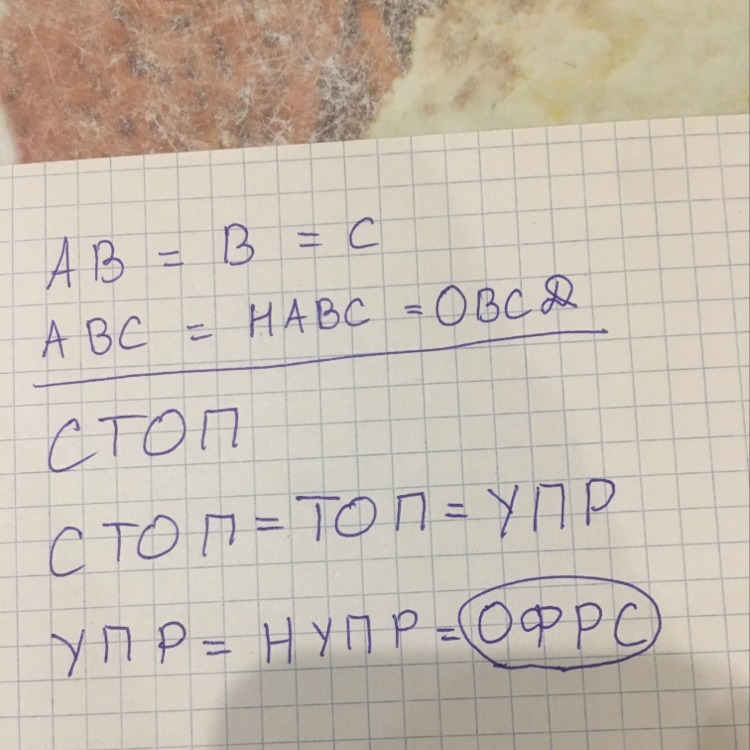 АВ = В = С
АВС = НАВС = ОВСД
СТОП
СТОП = ТОП = УПР
УПР = НУПР = ОФРС